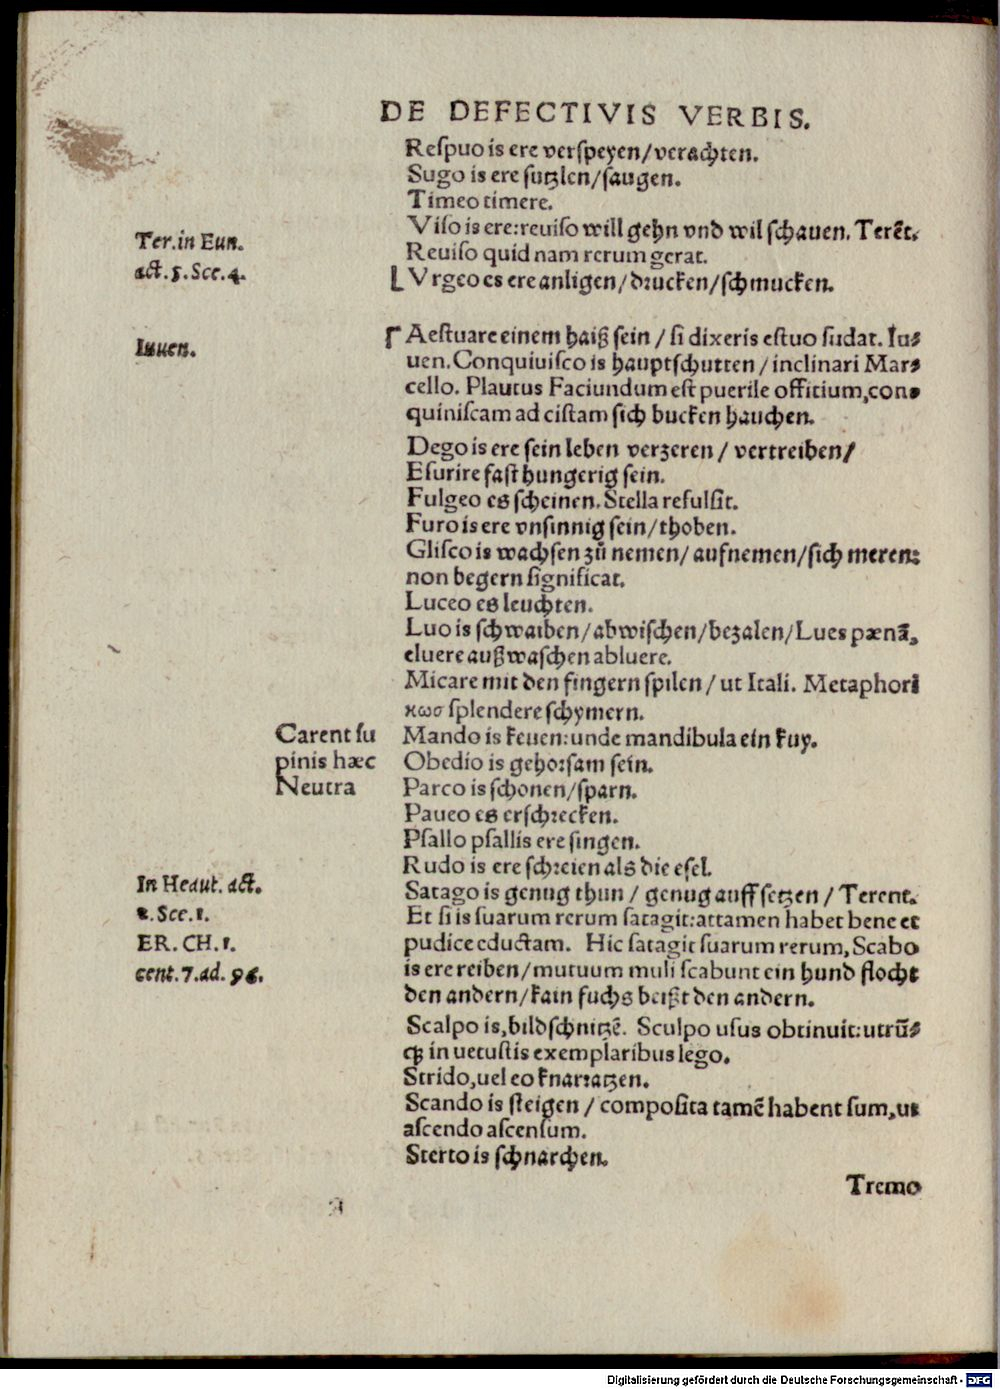 DE DEFECTIVIS VERBIS.
Reſpuo is ere verſpeyen/verachten.
Sugo is ere ſutzlen/ſaugen.
Timeo timere.
Viſo is ere: reuiſo will gehn vnd wil ſchauen. Terēt.
Ter. in Eun.
Reuiſo quid nam rerum gerat.
act. 5. Sce. 4.
Vrgeo es ere anligen/drucken/ſchmucken.
Aeſtuare einem haiß ſein / ſi dixeris eſtuo ſudat. Iu⸗
Iuuen.
uen. Conquiuiſco is hauptſchutten / inclinari Mar⸗
cello. Plautus Faciundum eſt puerile offitium, con⸗
quiniſcam ad ciſtam ſich bucken hauchen.
Dego is ere ſein leben verzeren / vertreiben/
Eſurire faſt hungerig ſein.
Fulgeo es ſcheinen. Stella refulſit.
Furo is ere vnſinnig ſein/thoben.
Gliſco is wachſen zuͦ nemen/ aufnemen/ſich meren:
non begern ſignificat.
Luceo es leuchten.
Luo is ſchwaiben/abwiſchen/bezalen/Lues pænā,
eluere außwaſchen abluere.
Micare mit den fingern ſpilen / ut Itali. Metaphori
κωσ ſplendere ſchymern.
Carent ſu
pinis hæc
Neutra
Mando is keuen: unde mandibula ein kuy.
Obedio is gehorſam ſein.
Parco is ſchonen/ſparn.
Paueo es erſchrecken.
Pſallo pſallis ere ſingen.
Rudo is ere ſchreien als die eſel.
In Heaut. act.
2. Sce. 1.
ER. CH. 1.
cent. 7. ad. 96.
Satago is genug thun / genug auff ſetzen / Terent.
Et ſi is ſuarum rerum ſatagit: attamen habet bene et
pudice eductam. Hic ſatagit ſuarum rerum, Scabo
is ere reiben/mutuum muli ſcabunt ein hund flocht
den andern/kain fuchs beißt den andern.
Scalpo is, bildſchnitzē. Sculpo uſus obtinuit: utrū⸗
qꝫ in uetuſtis exemplaribus lego.
Strido, uel eo knarratzen.
Scando is ſteigen / compoſita tamē habent ſum, ut
aſcendo aſcenſum.
Sterto is ſchnarchen.
Tremo
Digitalisierung gefördert durch die Deutsche Forschungsgemeinschaft - DFG